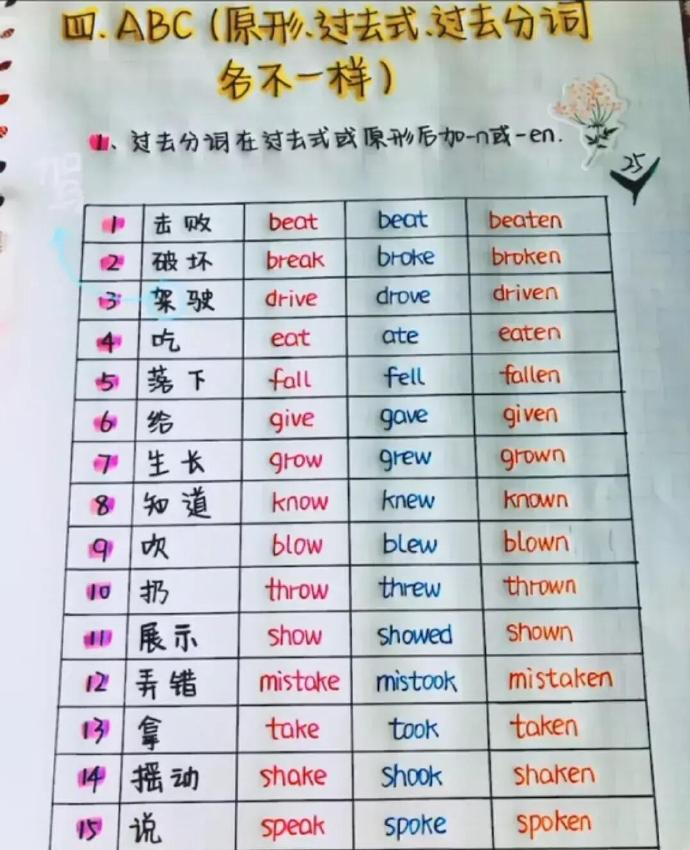 四.ABC(原形、过去式、过去分词
各不一样)
1、过去分词在过去式或原形后加-n或-en.
25
1 击败 beat beat beaten
2 破坏 break broke broken
3 驾驶 drive drove driven
4 吃 eat ate eaten
5 落下 fall fell fallen
6 给 give gave given
7 生长 grow grew grown
8 知道 know knew known
9 吹 blow blew blown
10 扔 throw threw thrown
11 展示 show showed shown
12 弄错 mistake mistook mistaken
13 拿 take took taken
14 摇动 shake shook shaken
15 说 speak spoke spoken